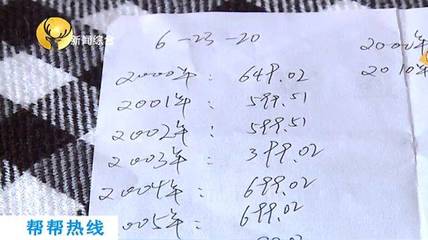 新闻综合
6-23-20
2000年: 649.02
2001年: 599.51
2002年: 599.51
2003年: 399.02
2004年: 699.02
005年: 699.02
2000年
2010年
帮帮热线